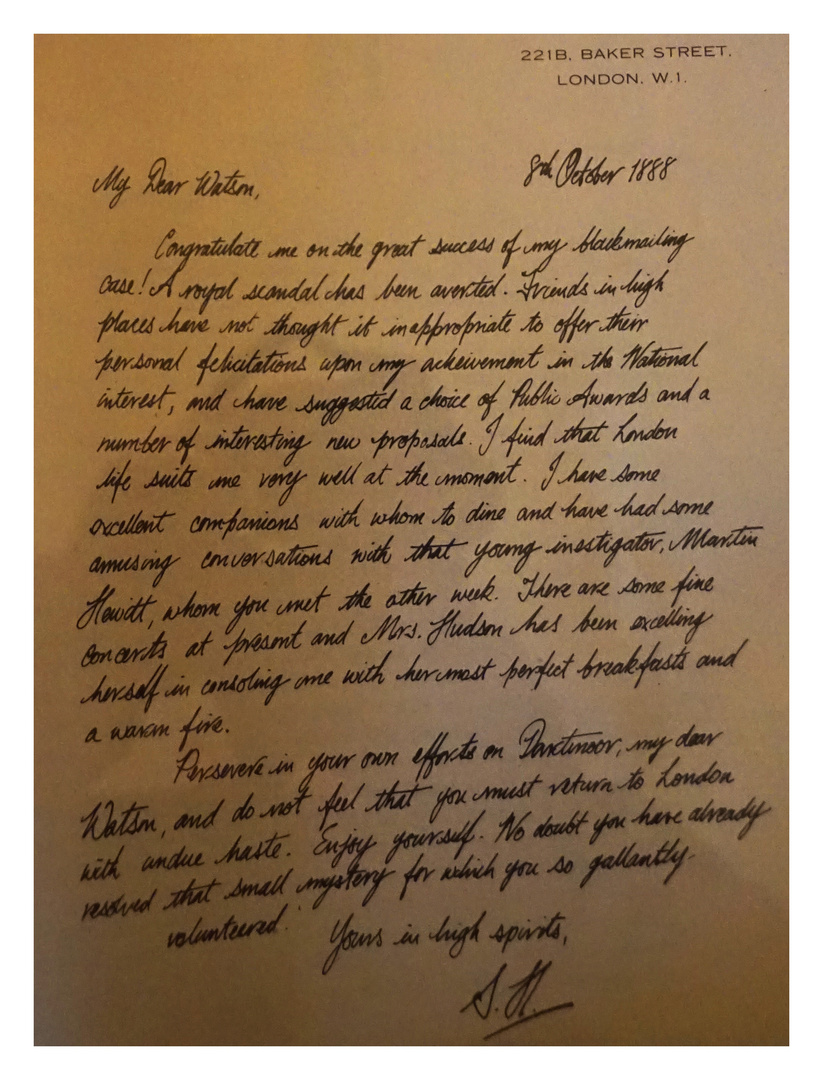 221B, BAKER STREET.
LONDON. W.1.
8th October 1888
My Dear Watson,
Congratulate me on the great success of my blackmailing
case! A royal scandal has been averted. Friends in high
places have not thought it inappropriate to offer their
personal felicitations upon my acheivement in the National
interest, and have suggested a choice of Public Awards and a
number of interesting new proposals. I find that London
life suits me very well at the moment. I have some
excellent companions with whom to dine and have had some
amusing conversations with that young inestigator, Martin
Hewitt, whom you met the other week. There are some fine
concerts at present and Mrs. Hudson has been excelling
herself in consoling me with her most perfect breakfasts and
a warm fire.
Persevere in your own efforts on Dartmoor, my dear
Watson, and do not feel that you must return to London
with undue haste. Enjoy yourself. No doubt you have already
resolved that small mystery for which you so gallantly
volunteered!
Yours in high spirits,
S.H.